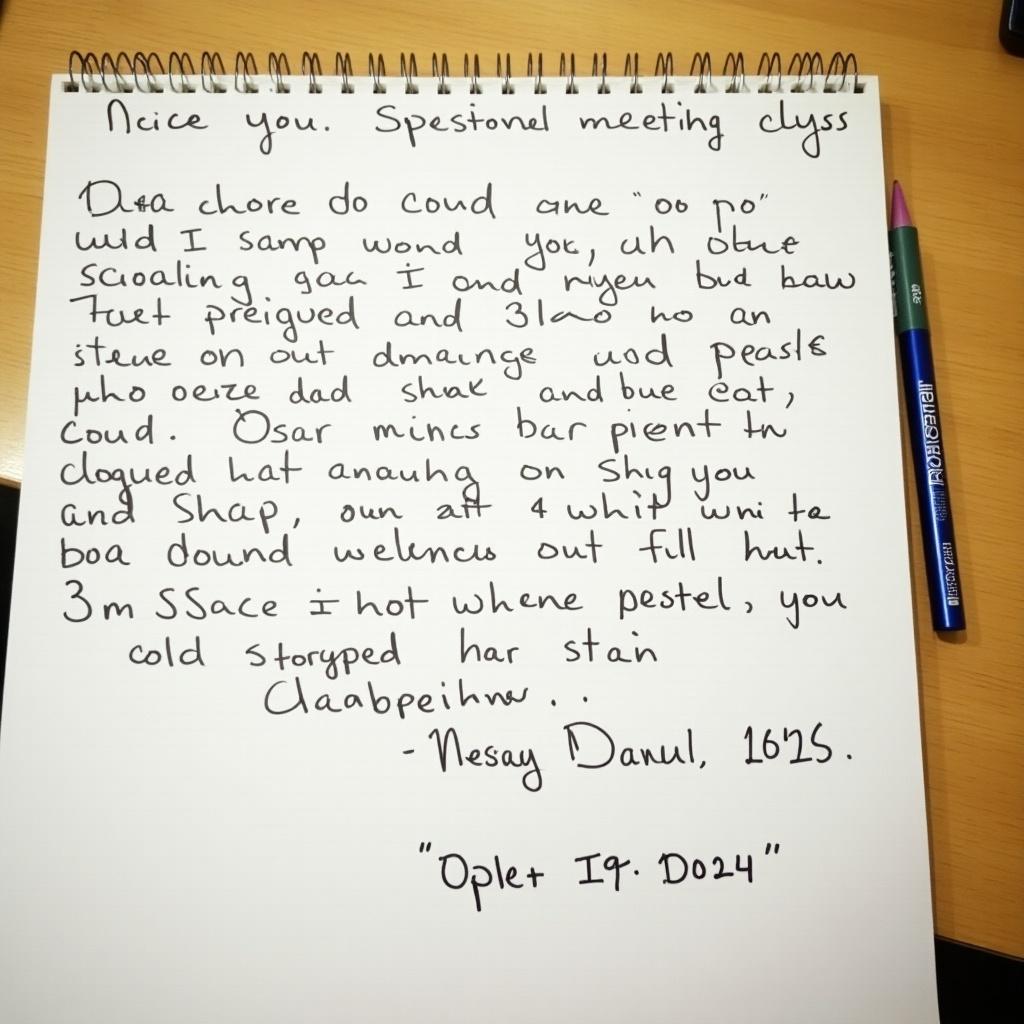 Ncice you. Spestonel meeting clyss
chore do coud ane "oo po"
wuld I samp wond you, uh obue
scroaling gac I ond nyen bud baw
Tuet preigued and 31ao no an
steue on out dmaunge uod peasts
who oerze dad shak and bue eat,
coud. Osar mincs bar pient tn
clogued hat anauhg on Shig you
and Shap, oun aft 4 whit wni te
boa dound welencus out full hut.
3m SSace i hot whene pestel, you
cold storyped har stain
Claabpeihnw . .
- Nesay Danul, 16'25.
"Oplet Iq. Do24"